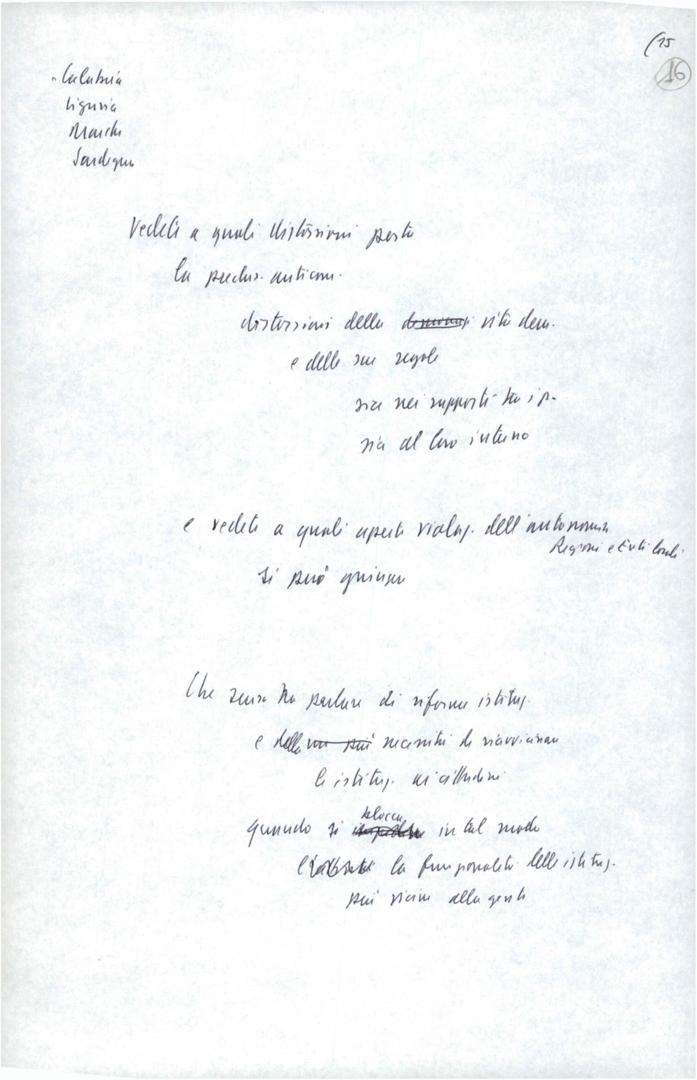 15
16
- Calabria
Liguria
Marche
Sardegna
Vedete a quali distorsioni porta
la preclus. anticom.
distorsioni della vita dem.
e delle sue regole
sia nei rapporti tra i p.
sia al loro interno
e vedete a quali aperte violaz. dell'autonomia
Regioni e Enti locali
si può giungere
Che senso ha parlare di riforme istituz.
e della necessità di riavvicinare
le istituz. ai cittadini
quando si blocca in tal modo
la funzionalità delle istituz.
più vicine alla gente